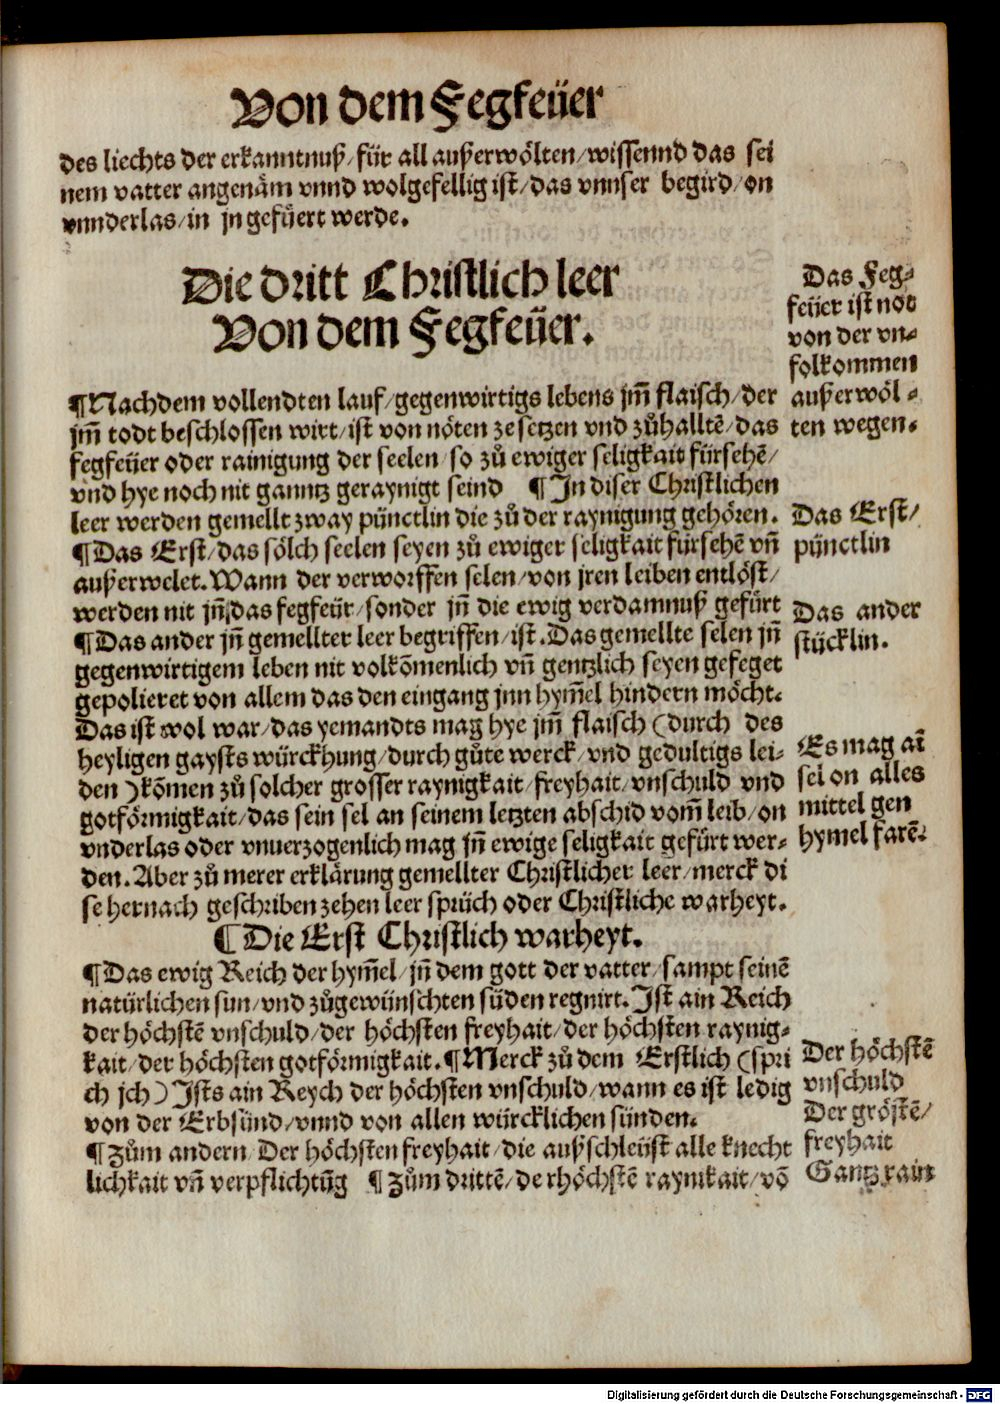 Von dem Fegfeüer
des liechts der erkanntnuß/für all außerwölten/wissennd das sei
nem vatter angenäm vnnd wolgefellig ist/das vnnser begird/on
vnnderlas/in jn gefüert werde.
Die dritt Christlich leer
Von dem Fegfeüer.
¶Nachdem vollendten lauf/gegenwirtigs lebens jm̄ flaisch/der
jm̄ todt beschlossen wirt/ist von nöten ze setzen vnd zůhalltē/das
fegfeüer oder rainigung der seelen/so zů ewiger seligkait fürsehē/
vnd hye noch nit ganntz geraynigt seind ¶In diser Christlichen
leer werden gemellt zway pünctlin die zů der raynigung gehören.
¶Das Erst/das sölch seelen seyen zů ewiger seligkait fürsehē vn̄
außerwelet. Wann der verworffen selen/von jren leiben entlöst/
werden nit jn̄ das fegfeür/sonder jn̄ die ewig verdamnuß gefürt
¶Das ander jn̄ gemellter leer begriffen/ist. Das gemellte selen jn̄
gegenwirtigem leben nit volkōmenlich vn̄ gentzlich seyen gefeget
gepolieret von allem das den eingang jnn hym̄el hindern möcht.
Das ist wol war/das yemandts mag hye jm̄ flaisch (durch des
heyligen gaysts würckhung/durch gůte werck/vnd gedultigs lei-
den) kōmen zů solcher grosser raynigkait/freyhait/vnschuld vnd
gotförmigkait/das sein sel an seinem letzten abschid vom̄ leib/on
vnderlas oder vnuerzogenlich mag jn̄ ewige seligkait gefürt wer-
den. Aber zů merer erklärung gemellter Christlicher leer/merck di
se hernach geschriben zehen leer sprüch oder Christliche warheyt.
¶Die Erst Christlich warheyt.
¶Das ewig Reich der hym̄el/jn̄ dem gott der vatter/sampt seinē
natürlichen sun/vnd zůgewünschten süden regnirt. Ist ain Reich
der höchstē vnschuld/der höchsten freyhait/der höchsten raynig-
kait/der höchsten gotförmigkait. ¶Merck zů dem Erstlich (spri
ch jch) Ists ain Reych der höchsten vnschuld/wann es ist ledig
von der Erbsünd/vnnd von allen würcklichen sünden.
¶Zům andern/Der höchsten freyhait/die außschleüst alle knecht
lichkait vn̄ verpflichtūg ¶Zům drittē/de rhöchstē raynikait/vō
Das Feg-
feüer ist not
von der vn-
folkommen
außerwöl-
ten wegen.
Das Erst/
pünctlin
Das ander
stücklin.
Es mag aī
sel on alles
mittel gen
hymel farē.
Der höchstē
vnschuld
Der gröstē/
freyhait
Gantz rain
Digitalisierung gefördert durch die Deutsche Forschungsgemeinschaft - DFG